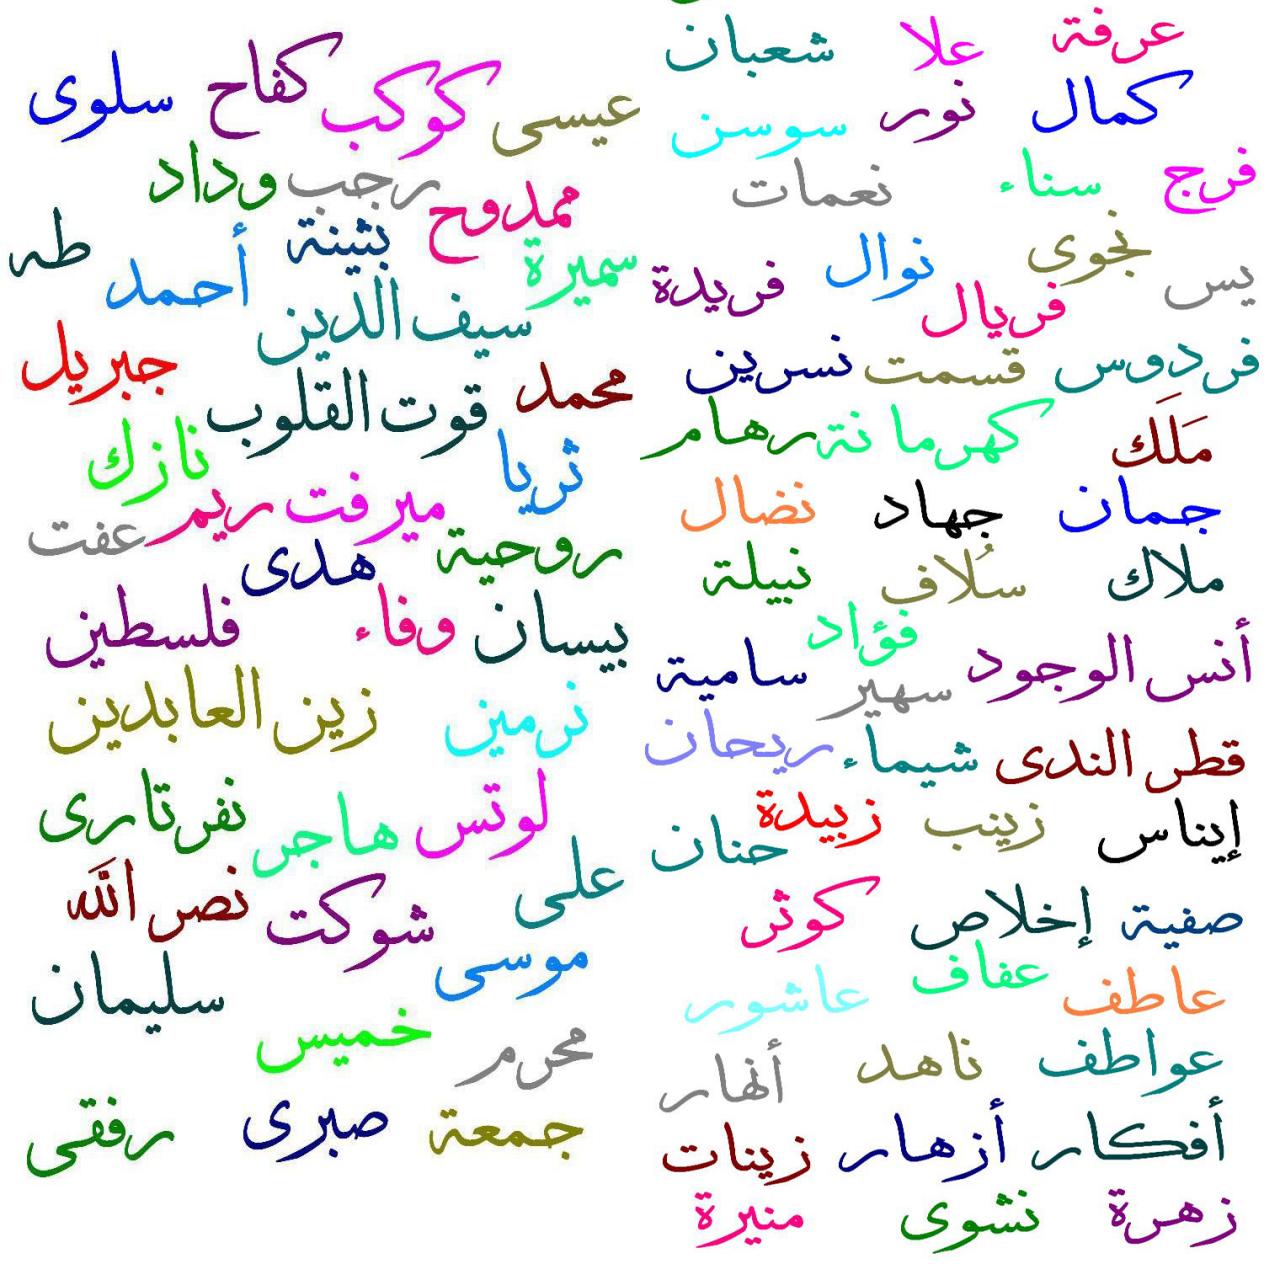 عرفة علا شعبان
كمال نور سوسن
فرج سناء نعمات
نجوى نوال فريدة
يس فريال
فردوس قسمت نسرين
مَلَك كهرمانة رهام
جمان جهاد نضال
ملاك سُلاف نبيلة
فؤاد
أنس الوجود سهير سامية
قطر الندى شيماء ريحان
إيناس زينب زبيدة حنان
صفية إخلاص كوثر
عاطف عفاف عاشور
عواطف ناهد أنهار
أفكار أزهار زينات
زهرة نشوى منيرة
عيسى كوكب كفاح سلوى
ممدوح رجب وداد
سميرة بثينة أحمد طه
سيف الدين
محمد قوت القلوب جبريل
ثريا نازك
ميرفت ريم عفت
روحية هدى
بيسان وفاء فلسطين
نرمين زين العابدين
لوتس هاجر نفرتارى
على شوكت نصر الله
موسى سليمان
محرم خميس
جمعة صبرى رفقى